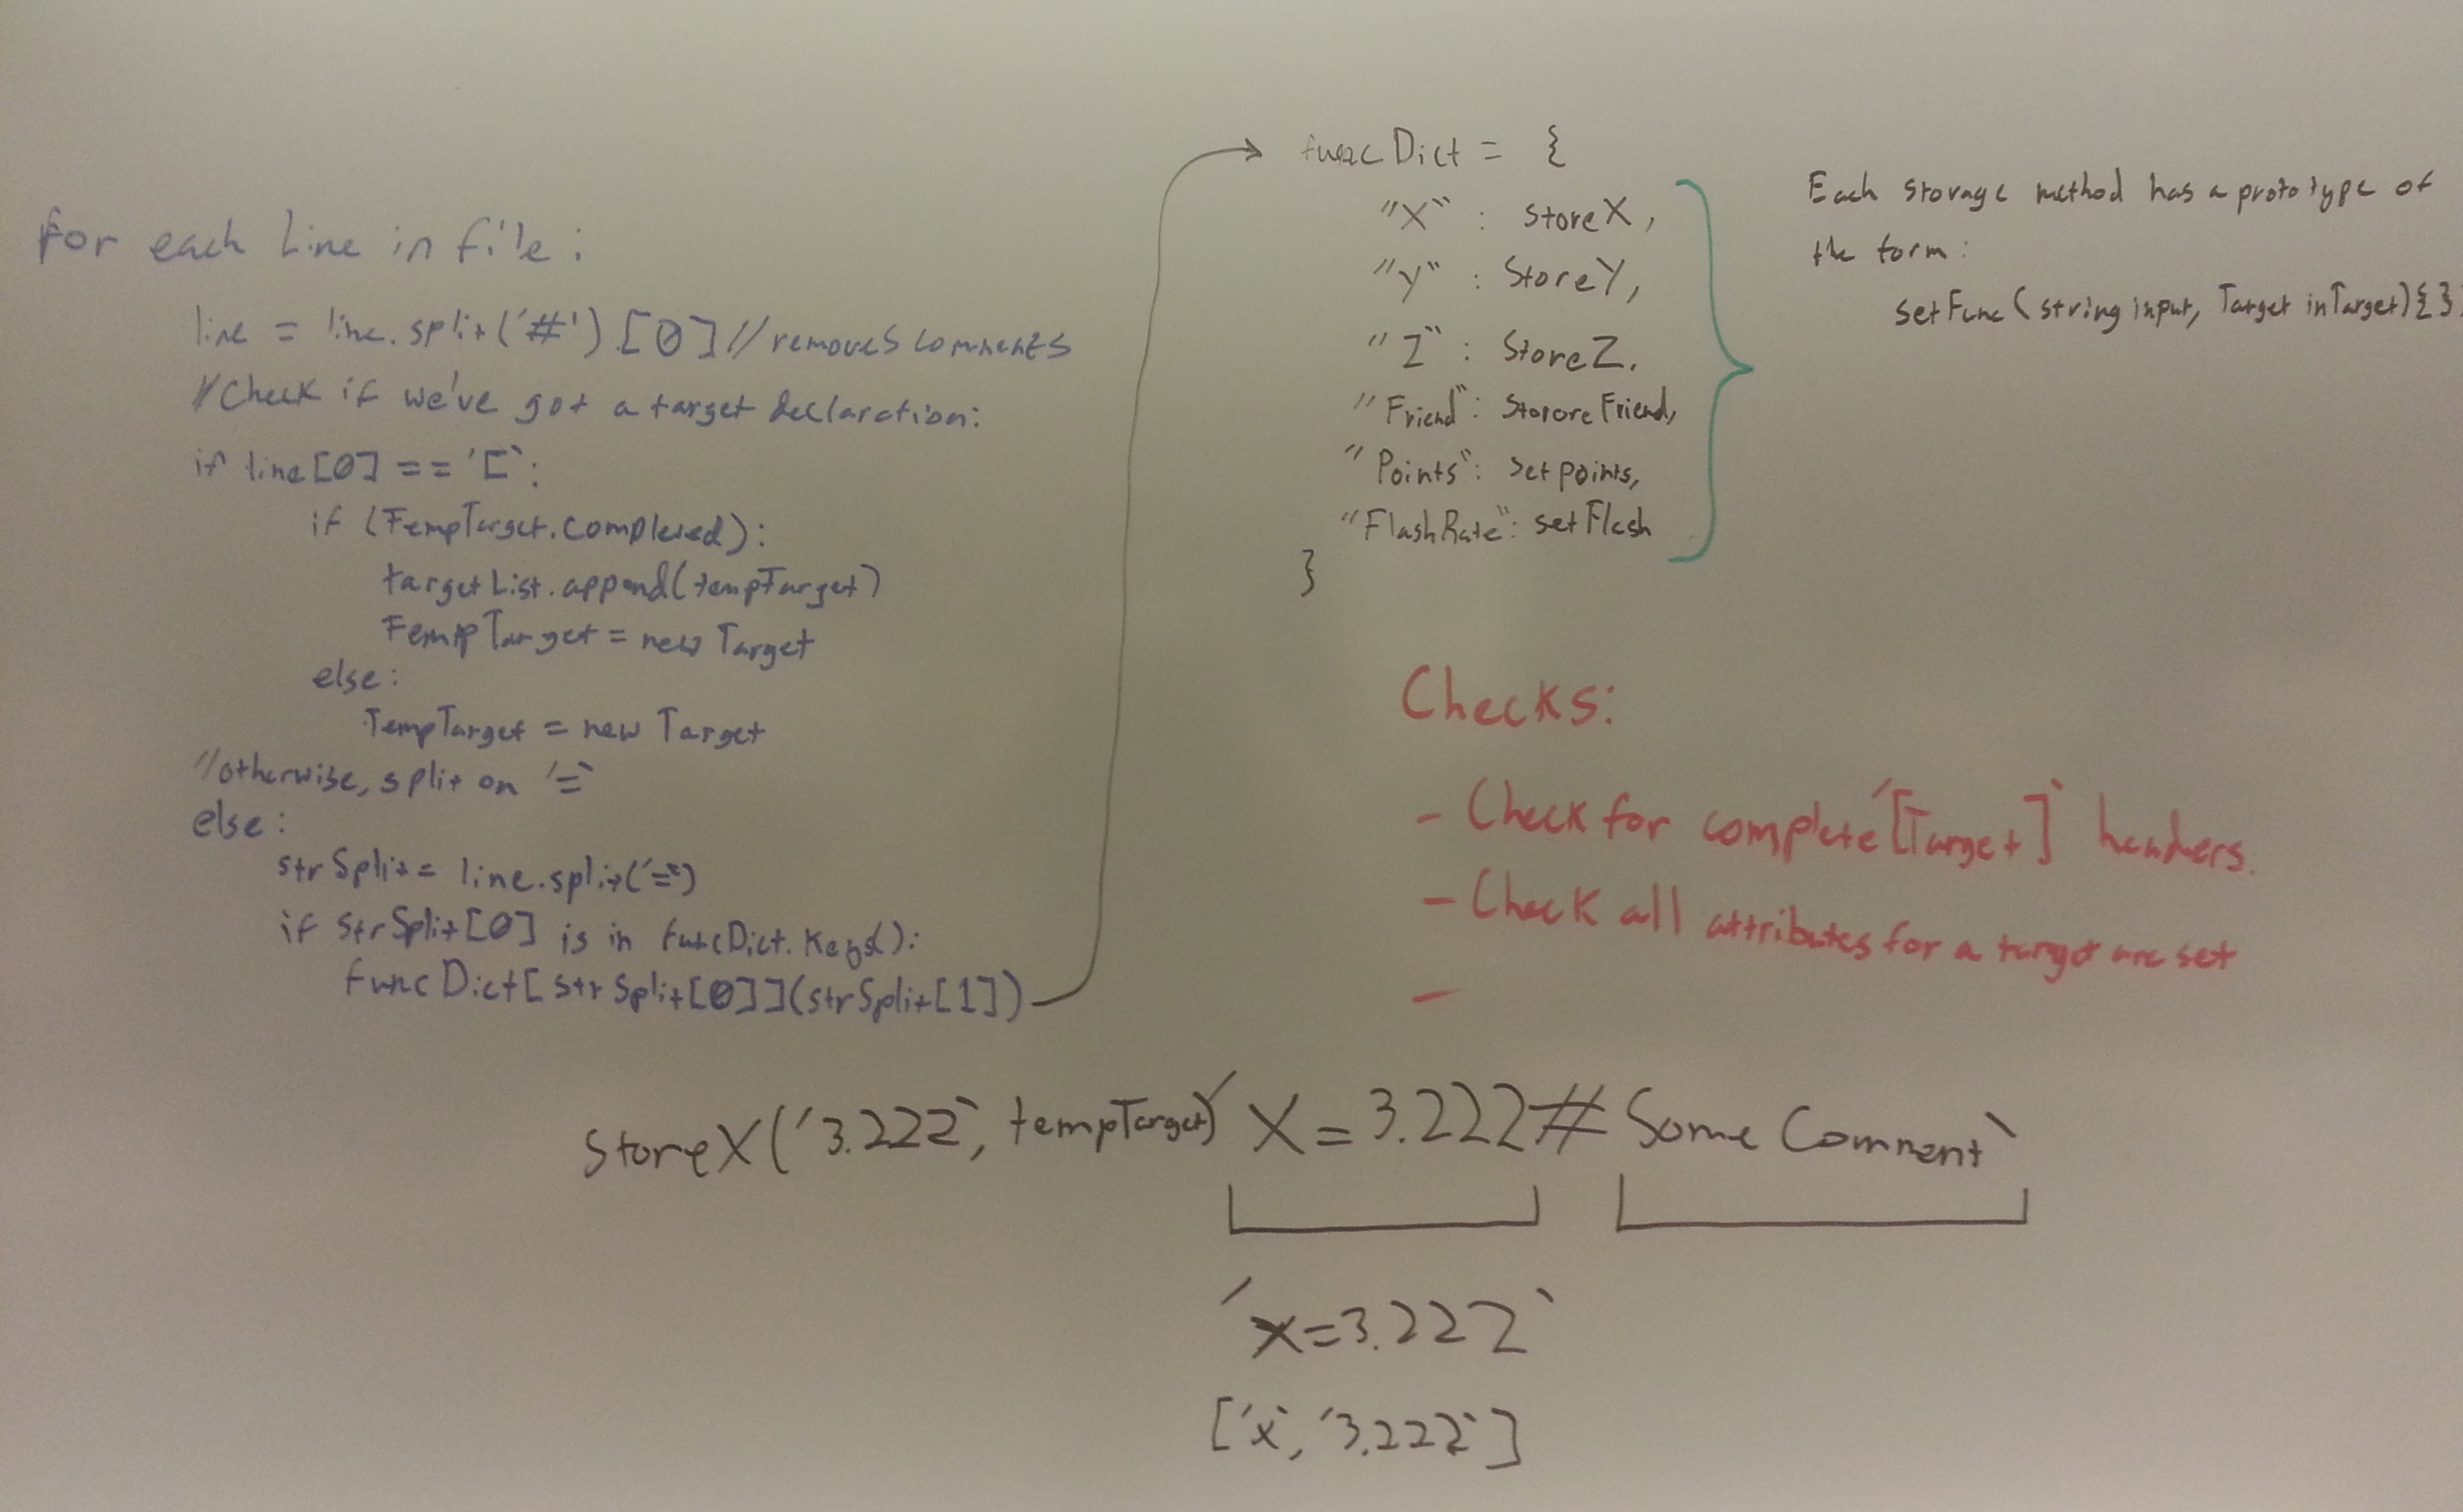 for each line in file:
line = line.split('#').[0] // removes comments
// Check if we've got a target declaration:
if line[0] == '[':
if (TempTarget.completed):
targetList.append(tempTarget)
TempTarget = new Target
else:
TempTarget = new Target
// otherwise, split on '='
else:
strSplit = line.split('=')
if strSplit[0] is in funcDict.Keys():
funcDict[strSplit[0]](strSplit[1])
funcDict = {
"X" : storeX,
"Y" : StoreY,
"Z" : StoreZ.
"Friend" : StororeFriend,
"Points" : setpoints,
"FlashRate" : setFlash
}
Each storage method has a prototype of
the form:
setFunc(string input, Target inTarget){}
Checks:
- Check for complete '[Target]' headers.
- Check all attributes for a target are set
-
storeX('3.222', tempTarget) 'X=3.222# Some Comment'
'x=3.222'
['x', '3.222']